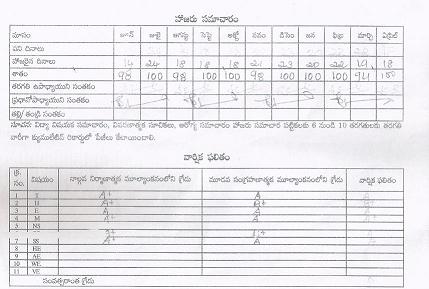 హాజరు సమాచారం
మాసం జూన్ జులై ఆగష్టు సెప్టె అక్టో నవం డిసెం జన ఫిబ్ర మార్చి ఏప్రిల్
పని దినాలు
హాజరైన దినాలు 14 24 18 18 18 21 23 20 22 19 18
శాతం 98 100 98 100 100 98 100 100 100 94 100
తరగతి ఉపాధ్యాయుని సంతకం
ప్రధానోపాధ్యాయుని సంతకం
తల్లి/ తండ్రి సంతకం
సూచన: విద్యా విషయక సమాచారం, వివరణాత్మక సూచికలు, ఆరోగ్య సమాచారం హాజరు సమాచార పట్టికలకు 6 నుండి 10 తరగతులకు తరగతి
వారీగా క్యుములేటివ్ రికార్డులో పేజీలు కేటాయించాలి.
వార్షిక ఫలితం
క్ర. సం. విషయం నాల్గవ నిర్మాణాత్మక మూల్యాంకనంలోని గ్రేడు మూడవ సంగ్రహణాత్మక మూల్యాంకనంలోని గ్రేడు వార్షిక ఫలితం
1 T A+ A
2 H A A+
3 E A A
4 M A+ A
5 NS
7 SS A+ A
8 HE
9 AE
10 WE
11 VE
సంవత్సరాంత గ్రేడు